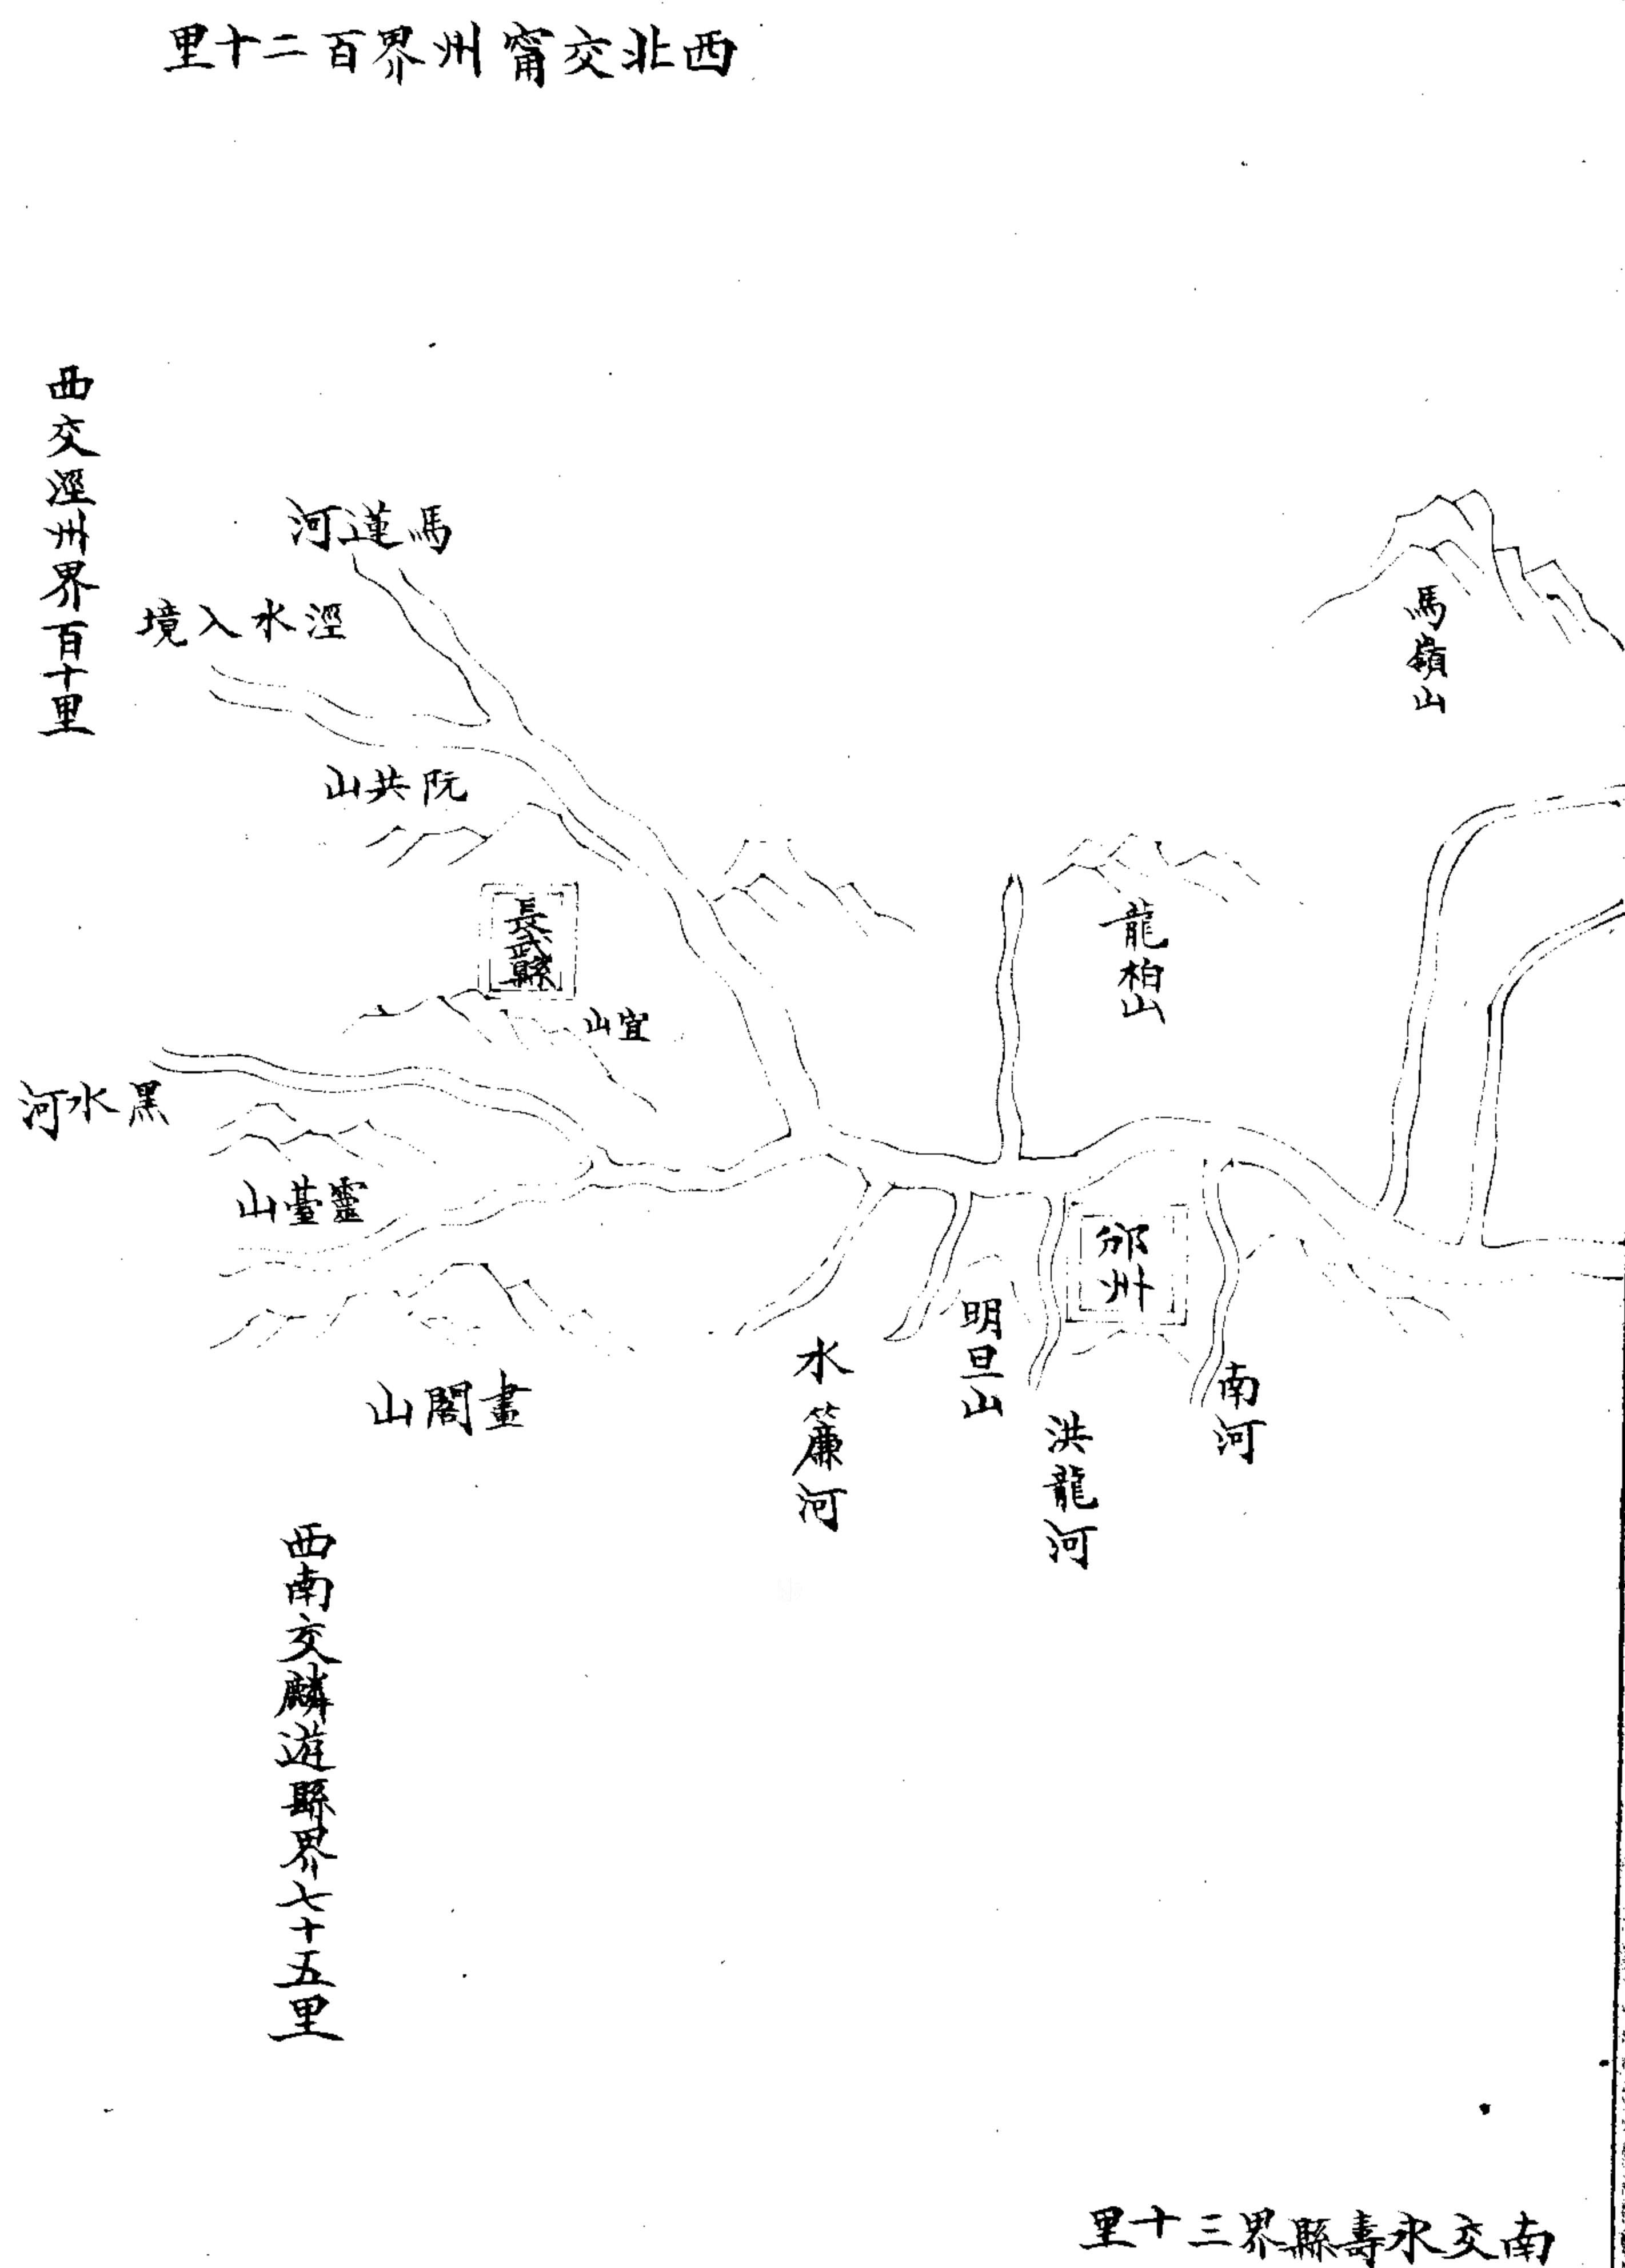 西北交甯州界百二十里
西交涇州界百十里
馬蓮河
涇水入境
馬嶺山
阮共山
長武縣
龍柏山
宜山
黑水河
靈臺山
邠州
明旦山
水簾河
南河
畫閣山
洪龍河
西南交麟遊縣界七十五里
南交永壽縣界三十里